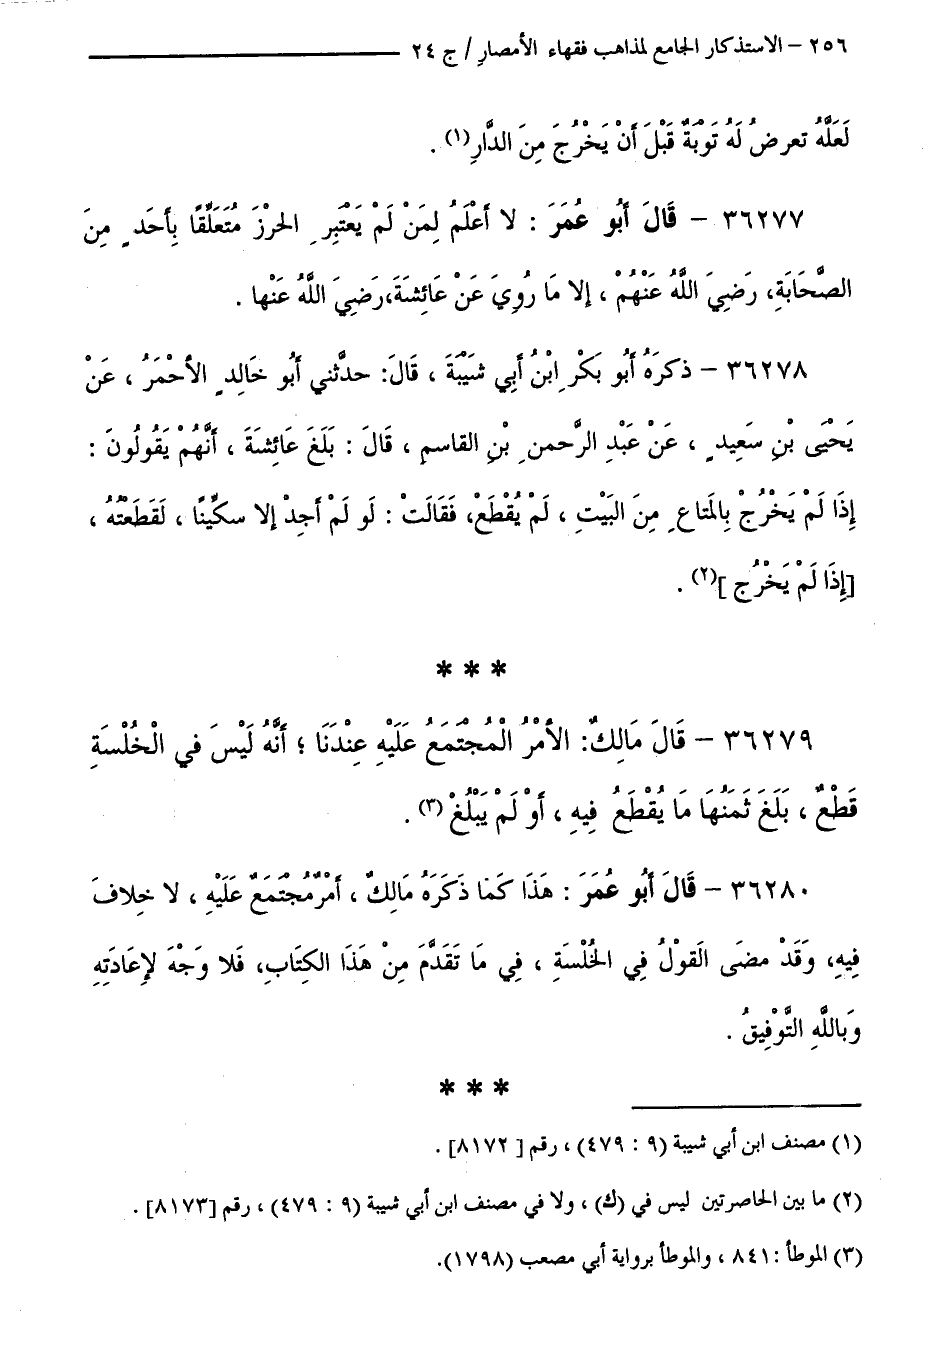 ٢٥٦ – الاستذكار الجامع لمذاهب فقهاء الأمصار / ج ٢٤
لَعَلَّهُ تعرضُ لَهُ تَوْبَةٌ قَبْلَ أَنْ يَخْرُجَ مِنَ الدَّارِ(١) .
٣٦٢٧٧ – قَالَ أَبُو عُمَرَ : لا أَعْلَمُ لِمَنْ لَمْ يَعْتَبِرِ الحَرْزَ مُتَعَلَّقًا بِأَحَدٍ مِنَ
الصَّحَابَةِ، رَضِيَ اللَّهُ عَنْهُمْ ، إلا مَا رُوِيَ عَنْ عَائِشَةَ،رَضِيَ اللَّهُ عَنْها .
٣٦٢٧٨ – ذكرَهُ أَبُو بَكْرِ ابْنُ أَبِي شَيْبَةَ ، قَالَ: حدَّثني أَبُو خَالِدٍ الأَحْمَرُ ، عَنْ
يَحْيَى بْنِ سَعِيدٍ ، عَنْ عَبْدِ الرَّحمنِ بْنِ القَاسمِ ، قَالَ : بَلَغَ عَائِشَةَ ، أَنَّهُمْ يَقُولُونَ :
إِذَا لَمْ يَخْرُجْ بِالمَتَاعِ مِنَ البَيْتِ ، لَمْ يُقْطَعْ، فَقَالَتْ : لَو لَمْ أَجِدْ إلا سكِّينًا ، لَقَطَعْتُهُ ،
[إِذَا لَمْ يَخْرُج ](٢) .
* * *
٣٦٢٧٩ – قَالَ مَالِكٌ: الأَمْرُ الْمُجْتَمَعُ عَلَيْهِ عِنْدَنَا ؛ أَنَّهُ لَيْسَ فِي الْخُلْسَةِ
قَطْعٌ ، بَلَغَ ثَمَنُهَا مَا يُقْطَعُ فِيهِ ، أَوْ لَمْ يَبْلُغْ(٣) .
٣٦٢٨٠ – قَالَ أَبُو عُمَرَ : هَذَا كَمَا ذَكَرَهُ مَالِكٌ ، أَمْرٌ مُجْتَمَعٌ عَلَيْهِ ، لا خِلافَ
فِيهِ، وَقَدْ مضَى القَوْلُ فِي الخُلْسَةِ ، فِي مَا تَقَدَّمَ مِنْ هَذَا الكِتَابِ، فَلا وَجْهَ لإِعَادَتِهِ
وَبَاللَّهِ التَّوْفِيقُ .
* * *
(١) مصنف ابن أبي شيبة (٩ : ٤٧٩) ، رقم [ ٨١٧٢] .
(٢) ما بين الحاصرتين ليس في (ك) ، ولا في مصنف ابن أبي شيبة (٩ : ٤٧٩) ، رقم [٨١٧٣] .
(٣) الموطأ :٨٤١ ، والموطأ برواية أبي مصعب (١٧٩٨).